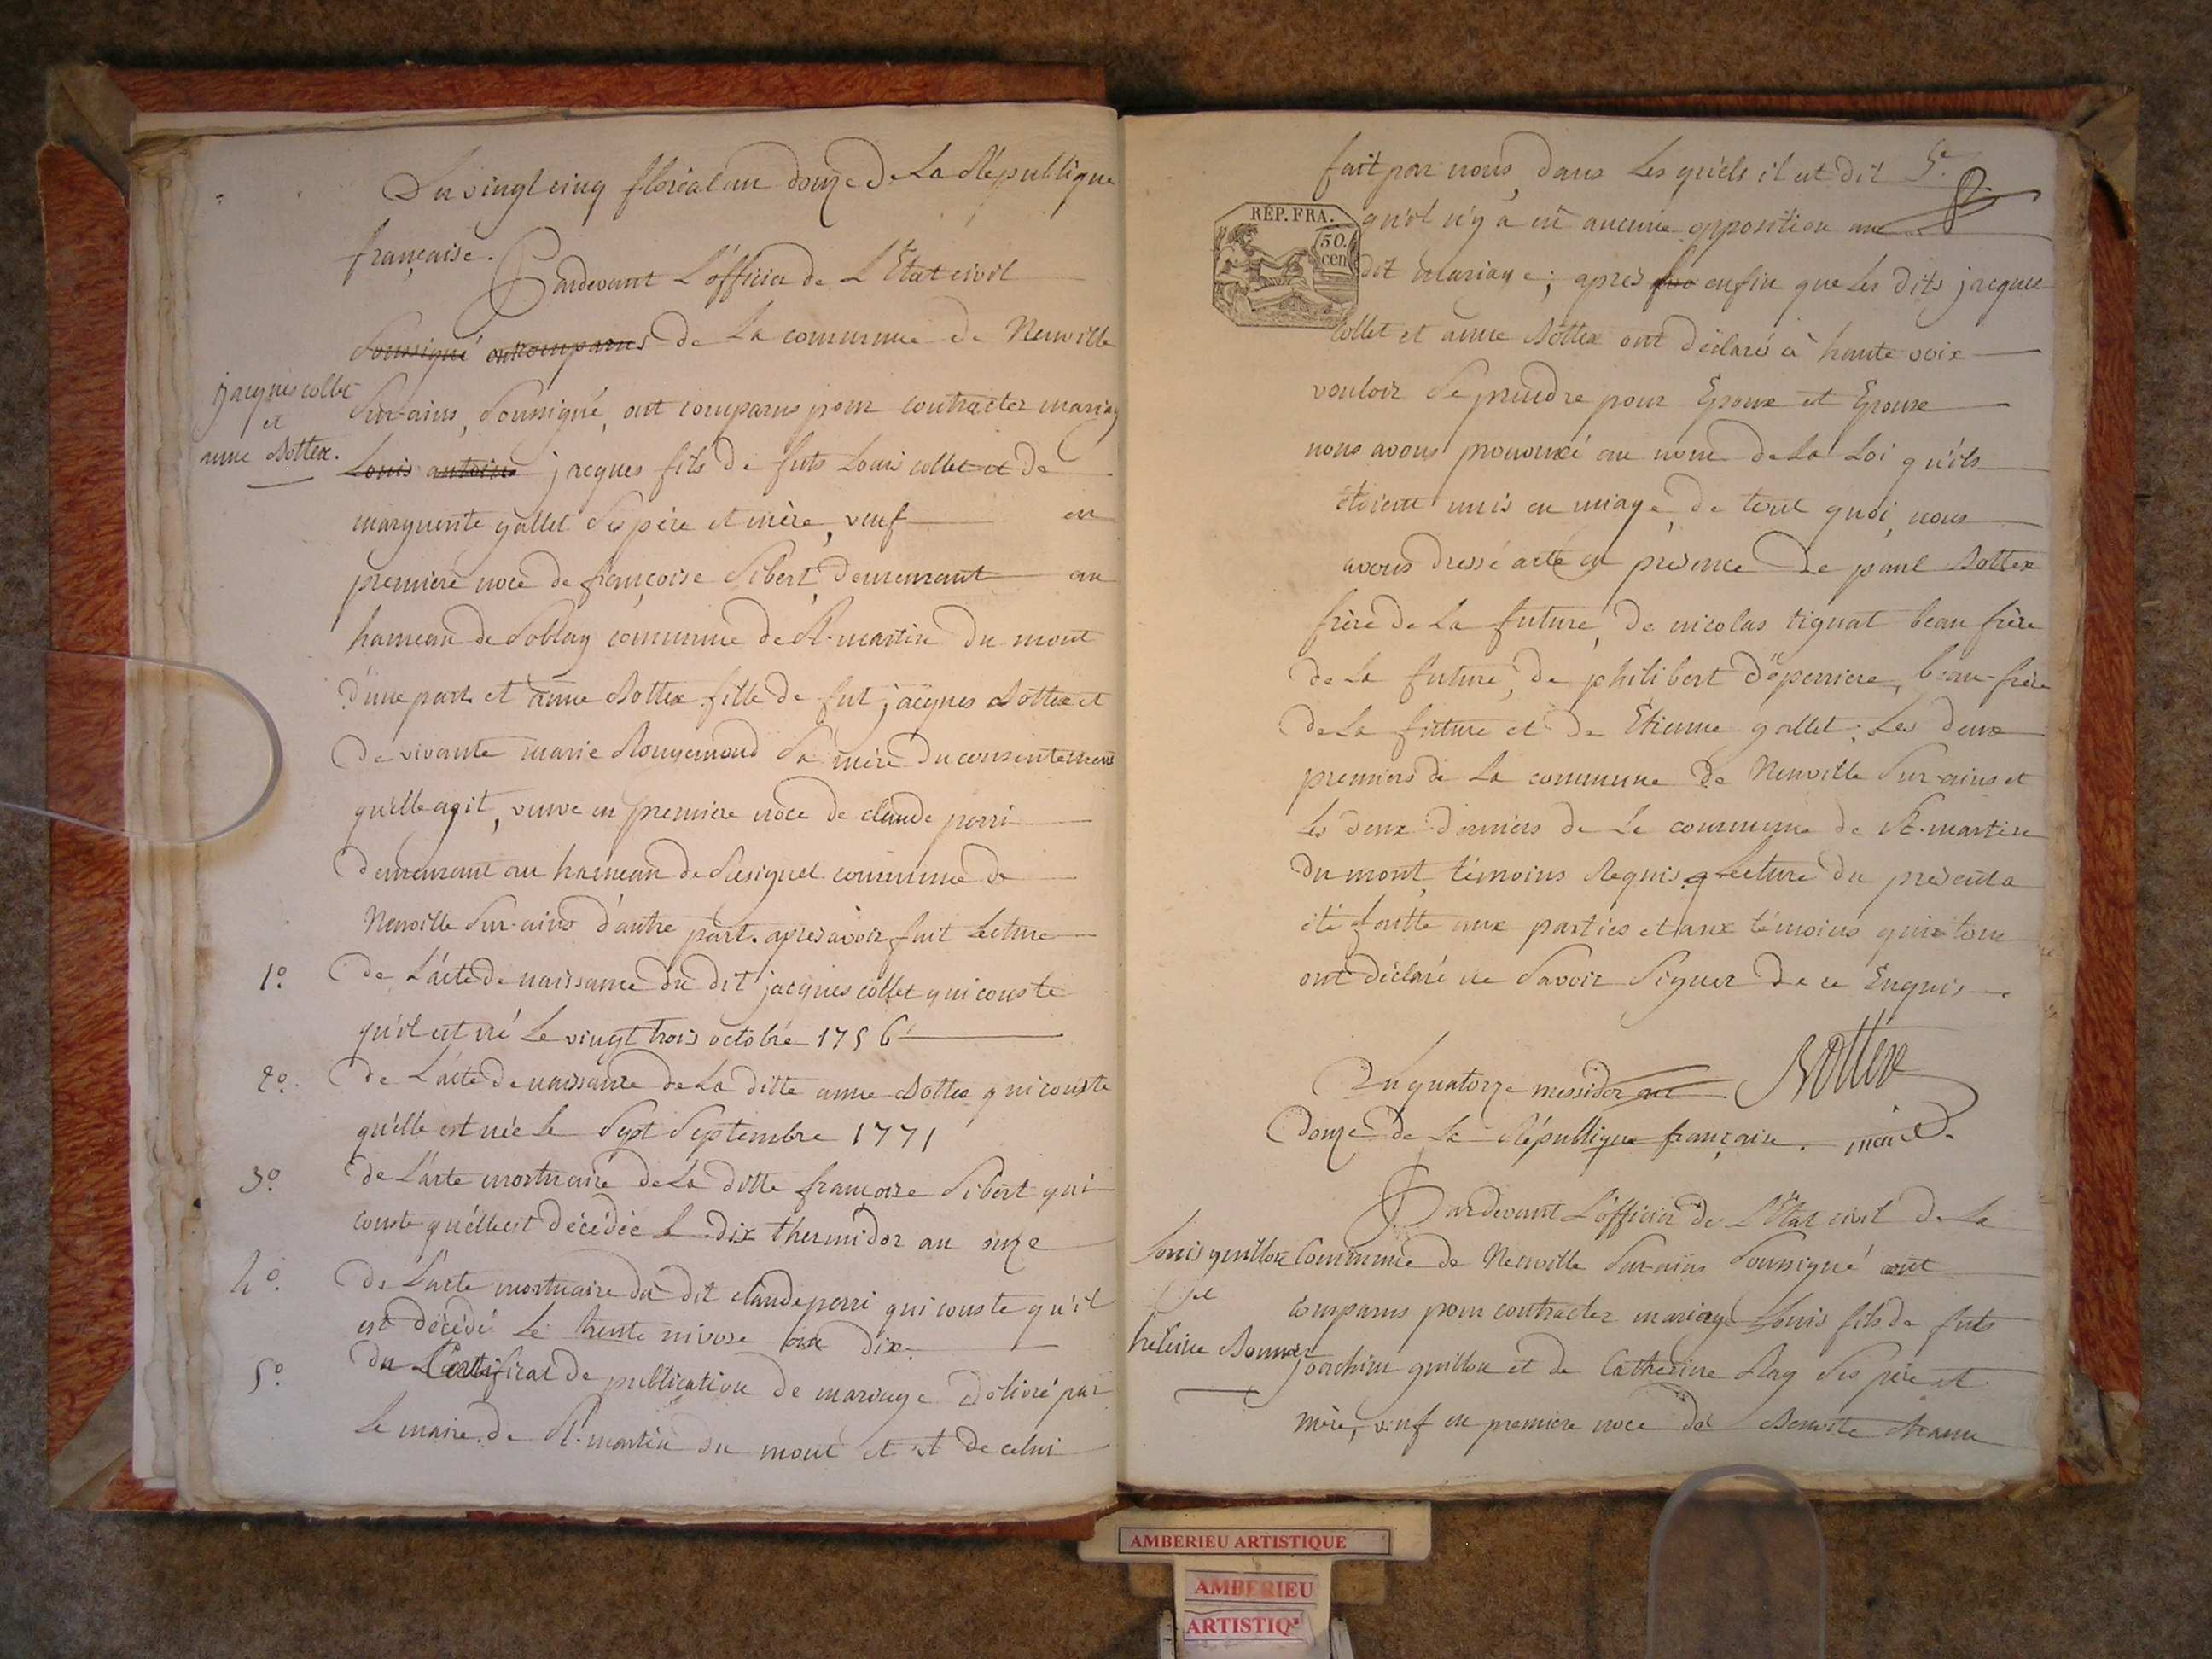 Du vingt cinq floréal an douze De La République
française.
Pardevant L'officier de L'Etat civil
Soussigné ont comparus de La commune de Neuville
jacques collet
et
anne Bottex.
Sur-ains, Soussigné, ont comparus pour contracter mariage
Louis antoine jacques fils de futs Louis collet et de
marguerite gallet Ses père et mère, veuf en
premiere noce de françoise Sibert, demeurant au
hameau de Soblay commune de St. martin du mont
d'une part et anne Bottex fille de fut jacques Bottex et
de vivante marie Rougemond Sa mère du consentement
qu'elle agit, veuve en premiere noce de claude perri
demeurant au hameau de commune de
Neuville Sur-ains d'autre part. apres avoir fait Lecture
1o. de L'acte de naissance du dit jacques collet qui conste
qu'il est né Le vingt trois octobre 1756
2o. de L'acte de naissance de La ditte anne Bottex qui conste
qu'elle est née Le Sept Septembre 1771
3o. de L'acte mortuaire de La ditte françoise Sibert qui
conste qu'elle est décédée Le dix thermidor an onze
4o. de L'acte mortuaire du dit claude perri qui conste qu'il
est décédé Le trente nivose an dix
5o. du Certificat de publication de mariage délivré par
Le maire de St. martin du mont et et de celui
fait par nous, dans Les quiels il est dit
REP. FRA.
50.
cen
qu'il n'y a eu aucune opposition au
dit mariage; apres enfin que Les dits jacques
Collet et anne Bottex ont déclaré à haute voix
vouloir Se prendre pour Epoux et Epouse
nous avons prononcé au nom de La Loi qu'ils
étoient unis en miage, de tout quoi, nous
avons dressé acte en présence de paul Bottex
frère de La future, de nicolas tignat beau frère
de La future, de philibert beau-frère
de La future et de Etienne gallet. Les deux
premiers de La commune de Neuville Sur-ains et
Les deux derniers de Le commune de St. martin
du mont, témoins Requis, Lecture du présent a
été faitte aux parties et aux témoins qui tous
ont déclaré ne Savoir Signer de ce Enquis.
Bottex
Du quatorze messidor an
douze de La République française. maire.
Pardevant L'officier de L'Etat civil de La
Louis guillon
et
helene
Commune de Neuville Sur-ains Soussigné ont
comparus pour contracter mariage Louis fils de futs
joachim guillon et de Catherine Ses père et
mère, veuf en premiere noce de Benoite
AMBERIEU ARTISTIQUE
AMBERIEU
ARTISTIQ